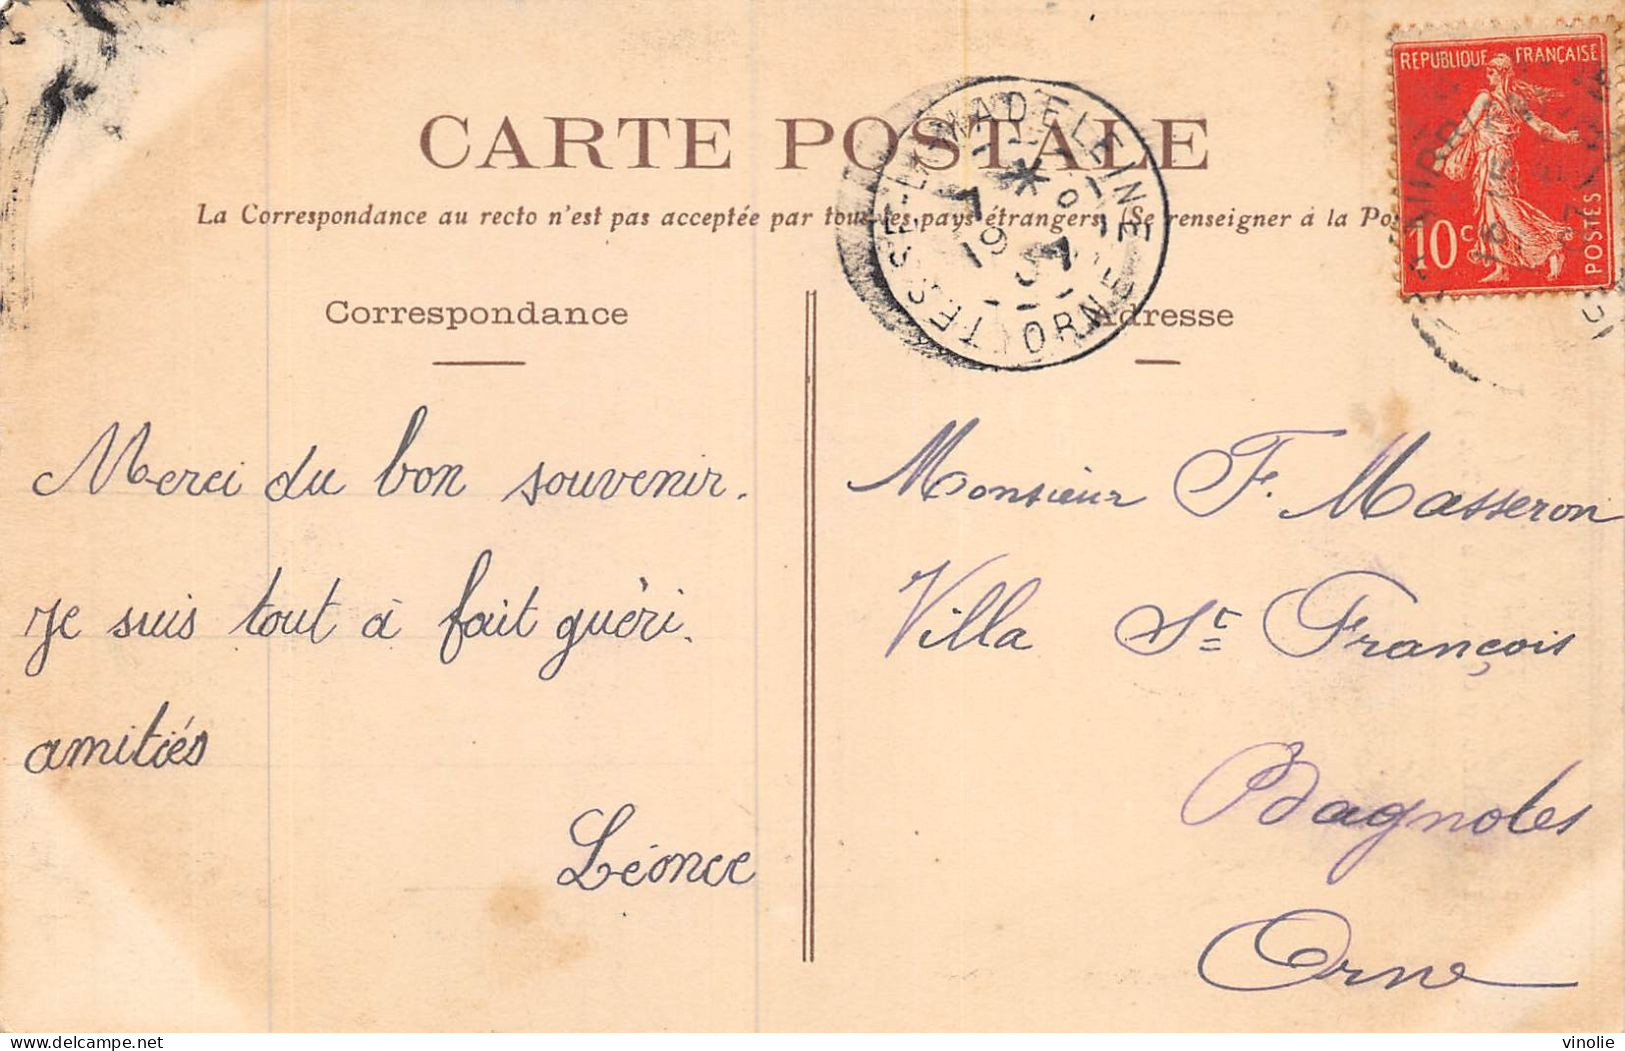 CARTE POSTALE
La Correspondance au recto n'est pas acceptée par tous les pays étrangers. (Se renseigner à la Pos
RÉPUBLIQUE FRANÇAISE
10 c
POSTES
TESSÉ-LA-MADELEINE
ORNE
7
19
07
Correspondance
Adresse
Merci du bon souvenir.
Je suis tout à fait guéri.
amitiés
Léonce
Monsieur F. Masseron
Villa St François
Bagnoles
Orne
delcampe.net
vinolie